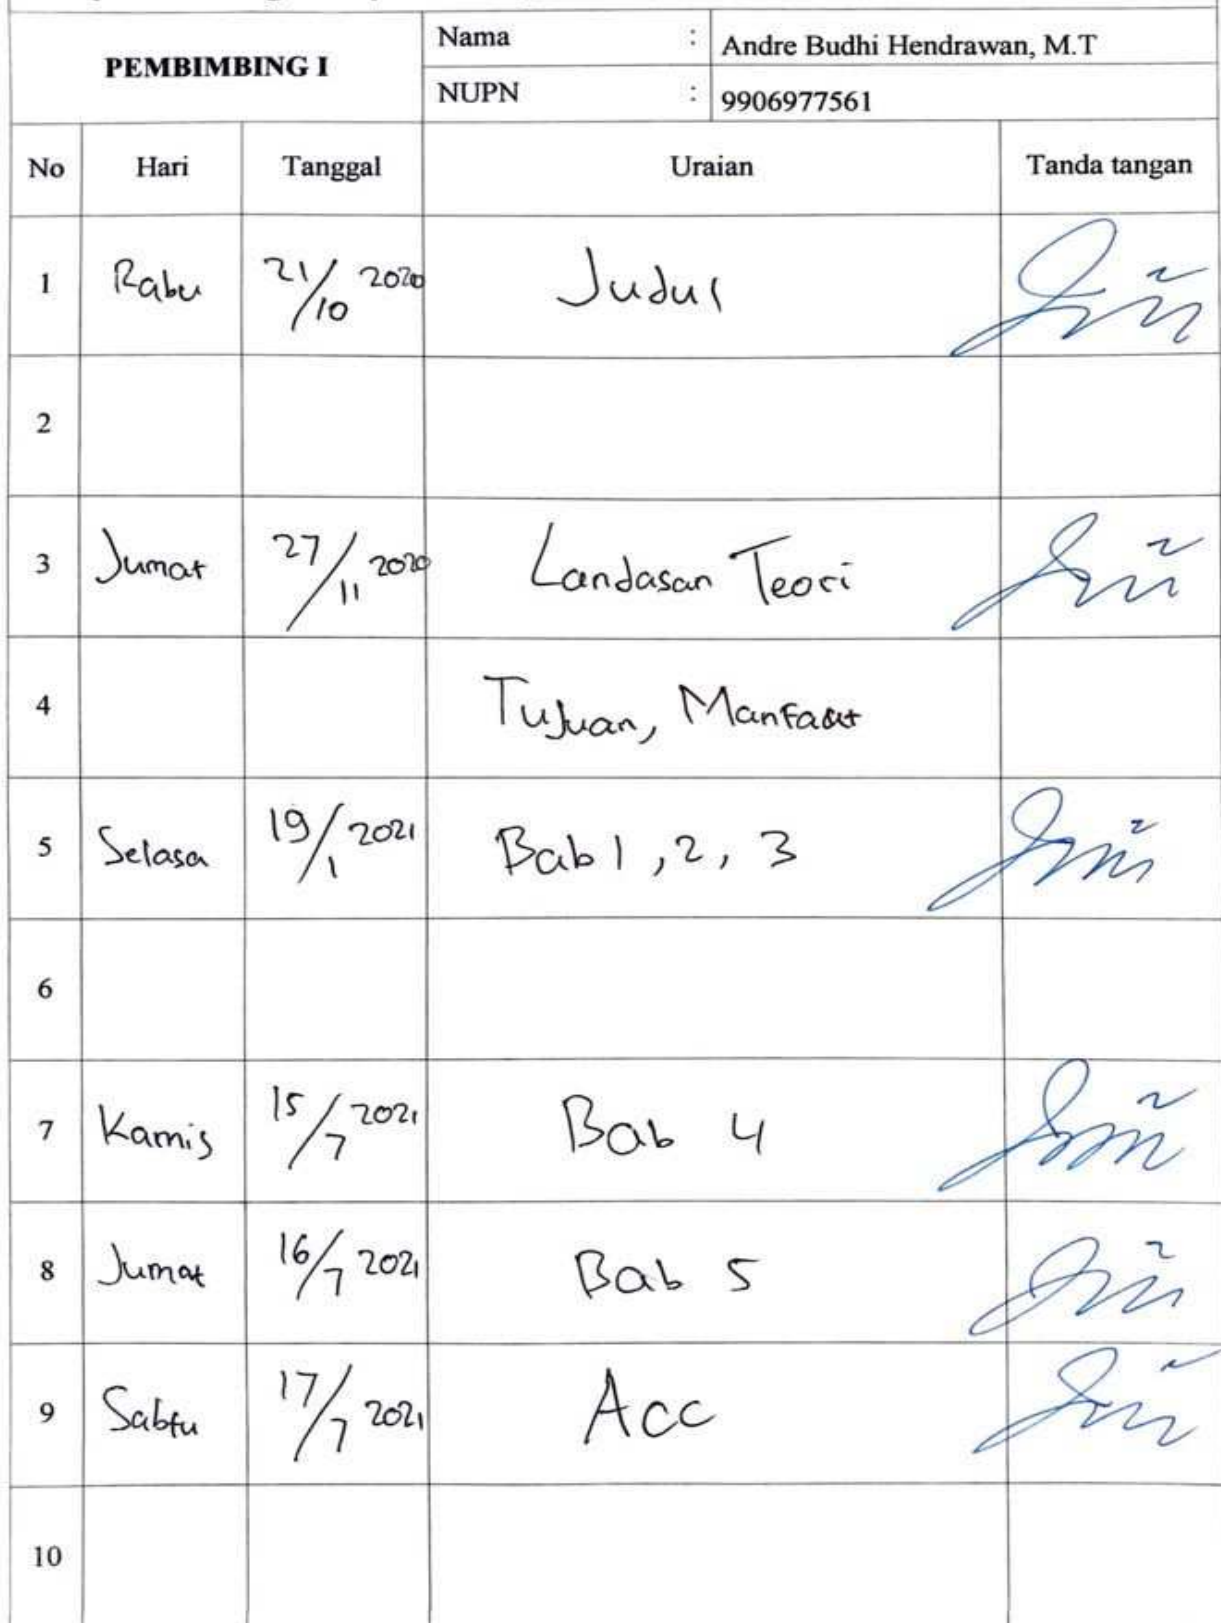 PEMBIMBING I
Nama : Andre Budhi Hendrawan, M.T
NUPN : 9906977561
No Hari Tanggal Uraian Tanda tangan
1 Rabu 21/10 2020 Judul
2
3 Jumat 27/11 2020 Landasan Teori
4 Tujuan, Manfaat
5 Selasa 19/1 2021 Bab 1, 2, 3
6
7 Kamis 15/7 2021 Bab 4
8 Jumat 16/7 2021 Bab 5
9 Sabtu 17/7 2021 Acc
10